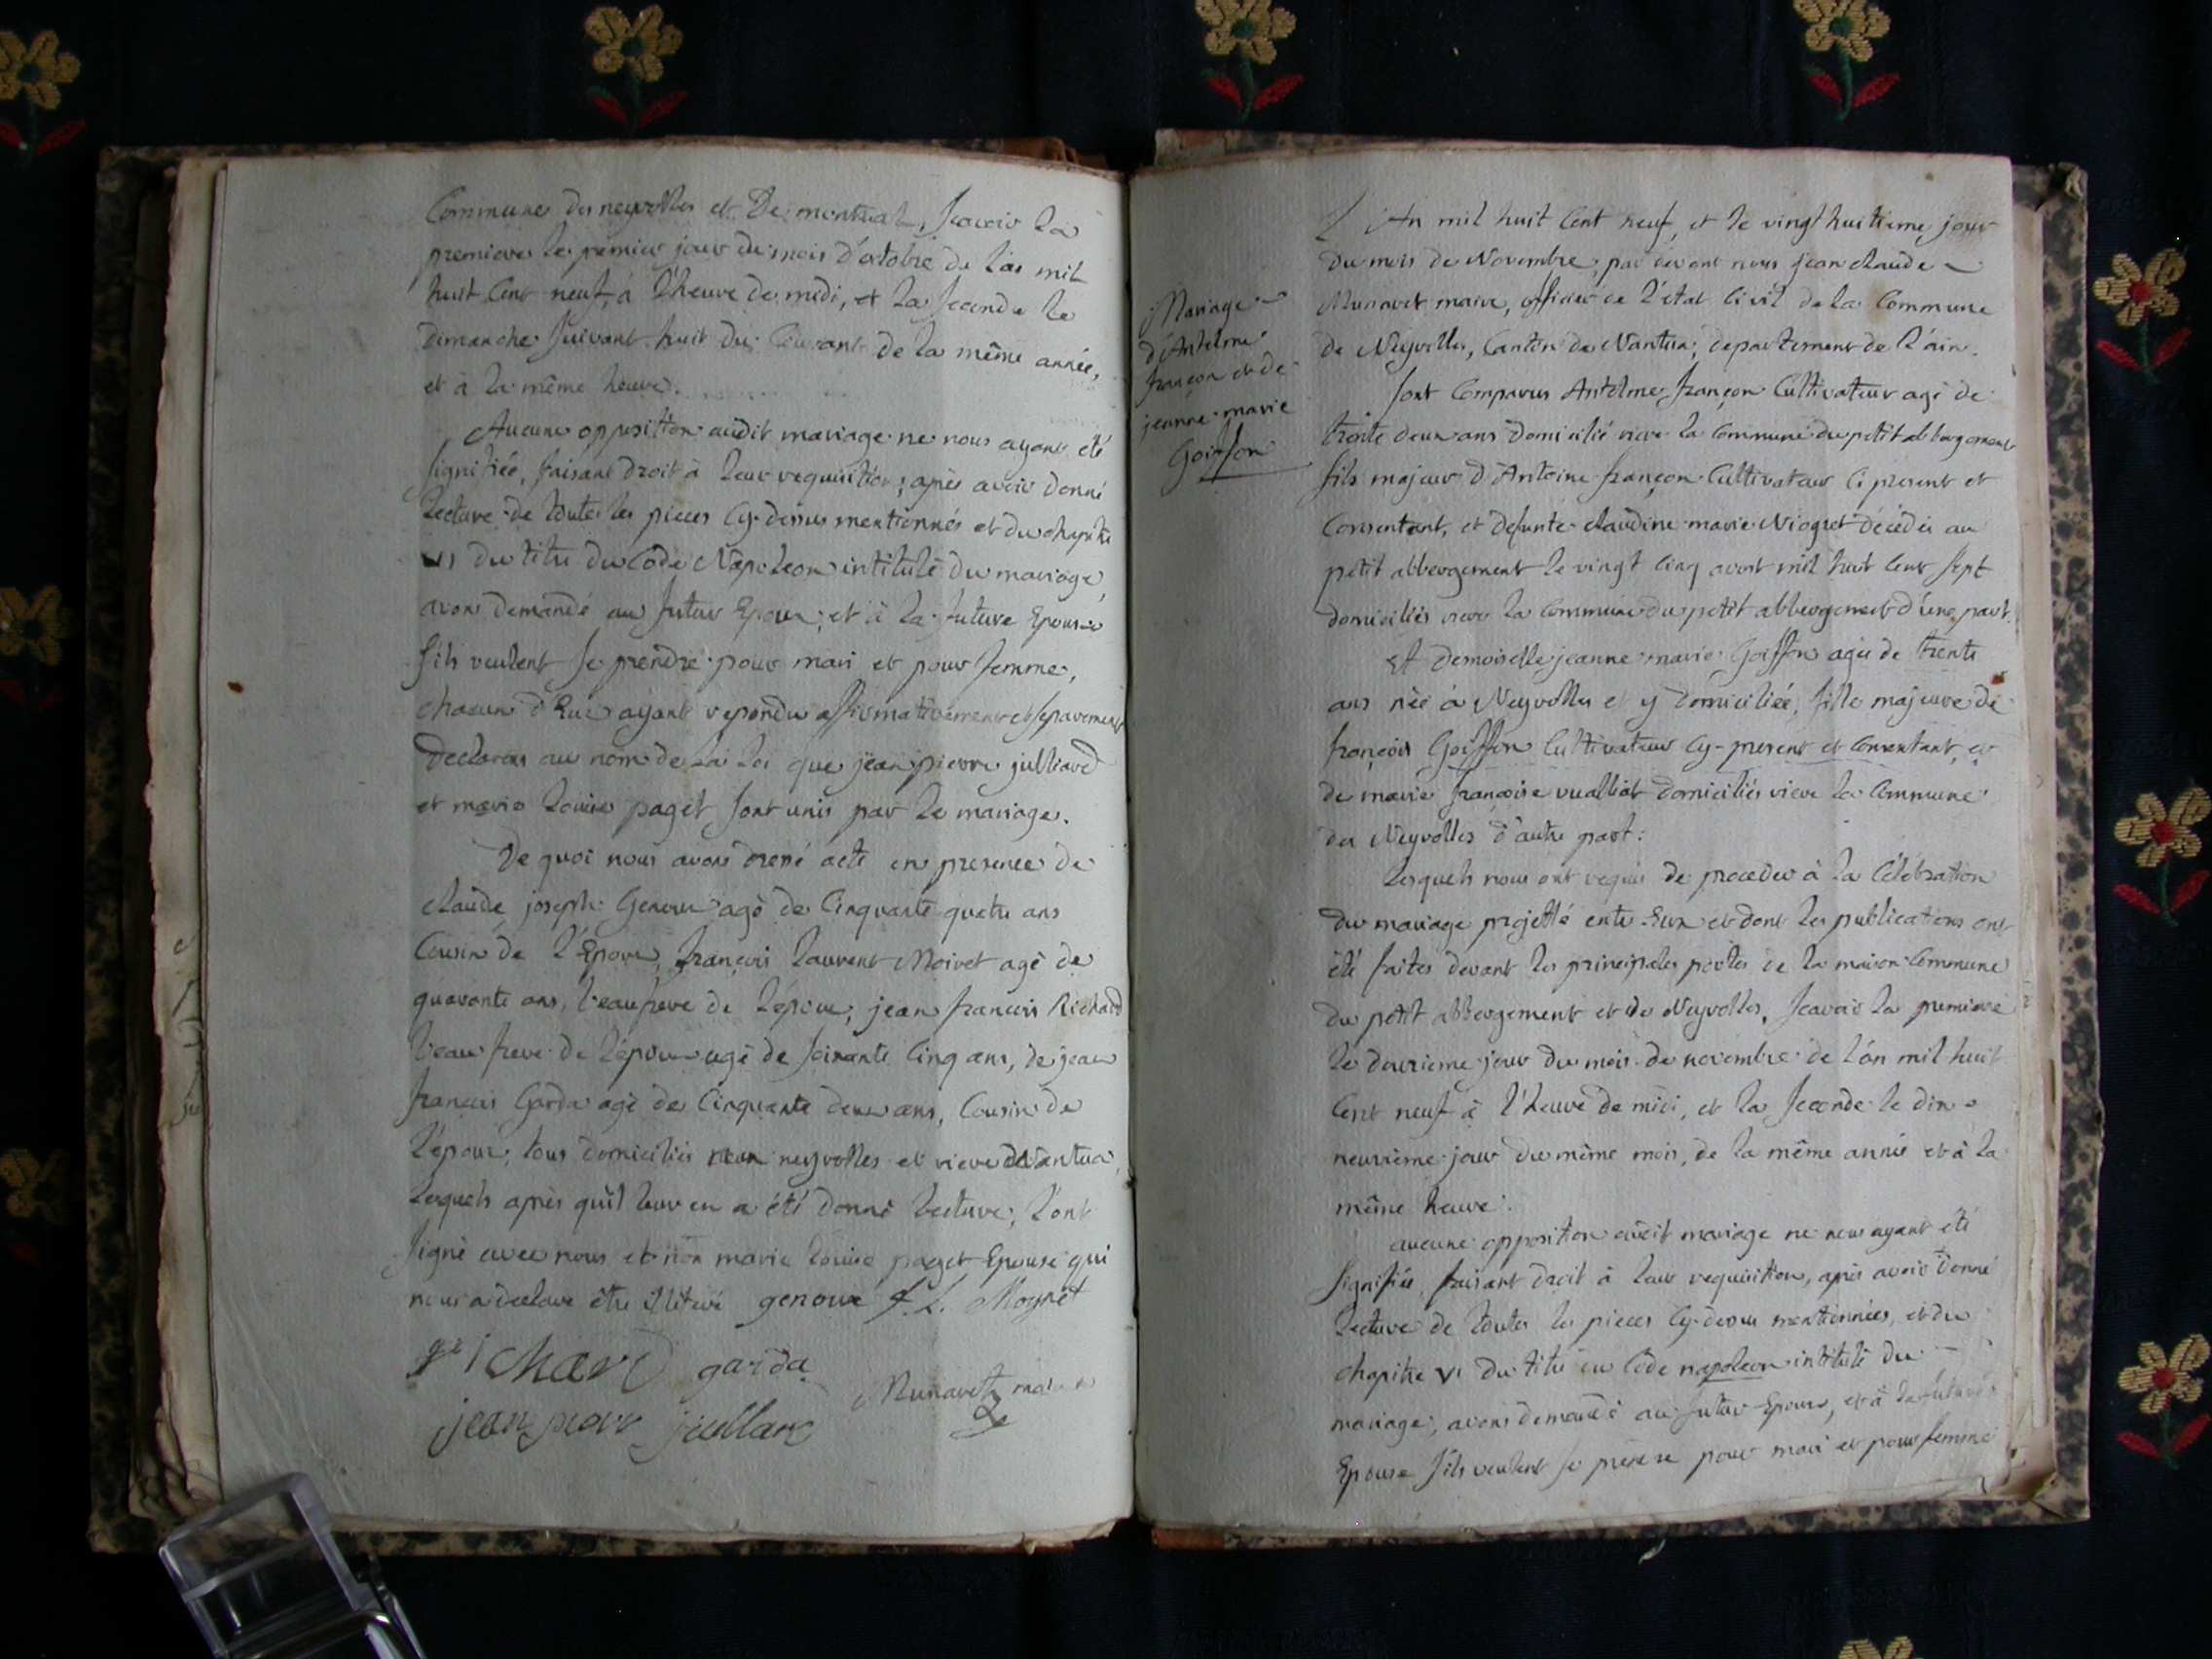 Commune des neyrolles et De montreal, Scavoir la
premiere le premier jour du mois d'octobre de l'an mil
huit Cent neuf, à l'heure de midi, et la Seconde le
dimanche Suivant huit du Courant de la même année,
et à la même heure.
Aucune opposition audit mariage ne nous ayant été
Signifiée, faisant droit à leur requisition, après avoir donné
lecture de toutes les pieces Cy-dessus mentionnés et du chapitre
VI du titre du Code Napoleon intitulé du mariage,
avons demandé au futur Epoux, et à la future Epouse
S'ils veulent Se prendre pour mari et pour femme,
chacun d'Eux ayant repondu affirmativement et separement
Declarons au nom de la loi que jean pierre julliard
et marie louise paget Sont unis par le mariage.
De quoi nous avons dressé acte en presence de
claude joseph Genoux agé de Cinquante quatre ans
Cousin de l'Epoux, françois laurent Moiret agé de
quarante ans, beaufrere de l'époux, jean francois Richard
beau frere de l'époux agé de soixante Cinq ans, de jean
francois Garda agé de Cinquante deux ans, Cousin de
l'époux, tous domiciliés neyrolles et riere Nantua,
lesquels après qu'il leur en a été donné lecture, l'ont
Signé avec nous et non marie louise paget Epouse qui
nous a declaré être illiteré genoux f. L. Moyret
richard garda
jean piere jullard Munavet maire
Mariage
d'Antelme
françon et de
jeanne marie
Goiffon
L'An mil huit Cent neuf, et le vingt huitieme jour
du mois de Novembre, par devant nous jean claude
Munavet maire, officier de l'etat Civil de la Commune
de Neyrolles, Canton de Nantua, departement de l'ain.
Sont Comparus Antelme françon Cultivateur agé de
trente deux ans domicilié riere la Commune du petit abbergement
fils majeur d'Antoine françon Cultivateur Ci present et
Consentant, et defunte claudine marie Niogret décédée au
petit abbergement le vingt Cinq avril mil huit Cent Sept
domiciliés riere la Commune du petit abbergement d'une part.
Et demoiselle jeanne marie Goiffon agée de trente
ans née à Neyrolles et y domiciliée, fille majeure de
françois Goiffon Cultivateur Cy-present et Consentant, et
de marie françoise vualliat domiciliés riere la Commune
des Neyrolles d'autre part.
lesquels nous ont requis de proceder à la Célébration
du mariage projetté entre Eux et dont les publications ont
été faites devant les principales portes de la maison Commune
du petit abbergement et de Neyrolles, Scavoir la premiere
le douzieme jour du mois de novembre de l'an mil huit
Cent neuf à l'heure de midi, et la Seconde le dix
neuvième jour du même mois, de la même année et à la
même heure.
aucune opposition audit mariage ne nous ayant été
Signifiée, faisant droit à leur requisition, après avoir donné
lecture de toutes les pieces Cy-dessus mentionnées, et du
chapitre VI du titre du Code napoleon intitulé du
mariage, avons demandé au futur Epoux, et à la future
Epouse S'ils veulent se prendre pour mari et pour femme